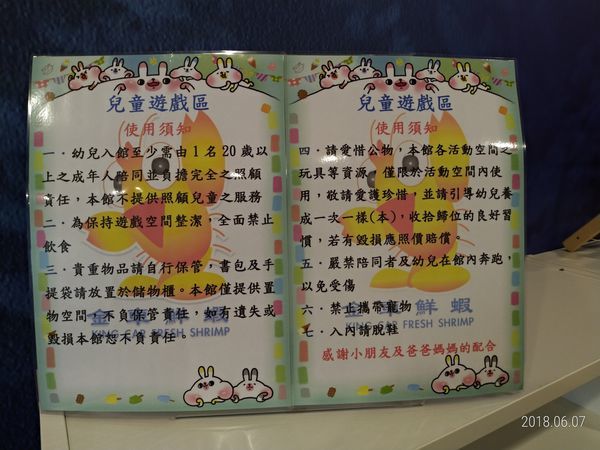 兒童遊戲區
使用須知
一．幼兒入館至少需由1名20歲以
上之成年人陪同並負擔完全之照顧
責任，本館不提供照顧兒童之服務
二．為保持遊戲空間整潔，全面禁止
飲食
三．貴重物品請自行保管，書包及手
提袋請放置於儲物櫃。本館僅提供置
物空間，不負保管責任，如有遺失或
毀損本館恕不負責任。
KING CAR FRESH SHRIMP
兒童遊戲區
使用須知
四．請愛惜公物，本館各活動空間之
玩具等資源，僅限於活動空間內使
用，敬請愛護珍惜，並請引導幼兒養
成一次一樣(本)，收拾歸位的良好習
慣，若有毀損應照價賠償。
五．嚴禁陪同者及幼兒在館內奔跑，
以免受傷
六．禁止攜帶寵物
七．入內請脫鞋
鮮蝦
KING CAR FRESH SHRIMP
感謝小朋友及爸爸媽媽的配合
2018.06.07